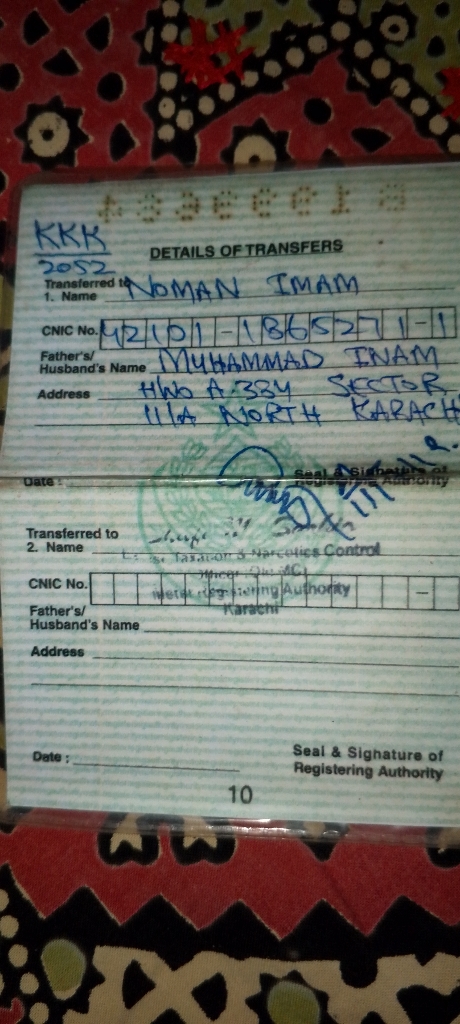 KKK
2052
DETAILS OF TRANSFERS
Transferred to
1. Name NOMAN IMAM
CNIC No. 42101-1865271-1
Father's/
Husband's Name MUHAMMAD INAM
Address H/No A 334 SECTOR
11/A NORTH KARACHI
Date : Seal & Signature of
Registering Authority
Transferred to
2. Name
Taxation & Narcotics Control
CNIC No. –
Motor Registering Authority
Karachi
Father's/
Husband's Name
Address
Date : Seal & Signature of
Registering Authority
10